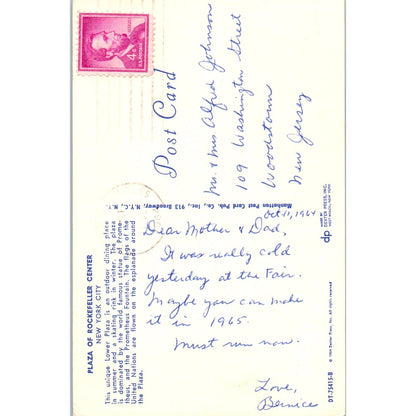 PLAZA OF ROCKEFELLER CENTER
NEW YORK CITY
This unique Lower Plaza is an outdoor dining place
in summer and a skating rink in winter. The plaza
is dominated by the world famous statue of Prome-
theus, and the Prometheus Fountain. The flags of the
United Nations are flown on the esplanade around
the Plaza.
Post Card
4¢
Mr. & Mrs Alfred Johnson
109 Washington Street
Woodstown
New Jersey
Manhattan Post Card Pub. Co., Inc., 913 Broadway, N.Y.C., N.Y.
Oct 11, 1964
Dear Mother & Dad,
It was really cold
yesterday at the Fair.
Maybe you can make
it in 1965.
Must run now.
Love,
Bernice
dp
MADE BY
DEXTER PRESS, INC.
WEST NYACK, NEW YORK
© 1964 Dexter Press, Inc. All rights reserved
DT-75415-B